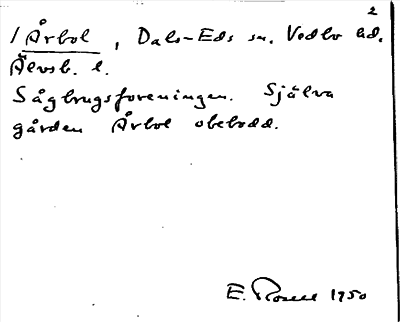 2
1 Årbol, Dals-Eds sn. Vedbo hd.
Älvsb. l.
Sågbrugsforeningen. Själva
gården Årbol obebodd.
E. 1950